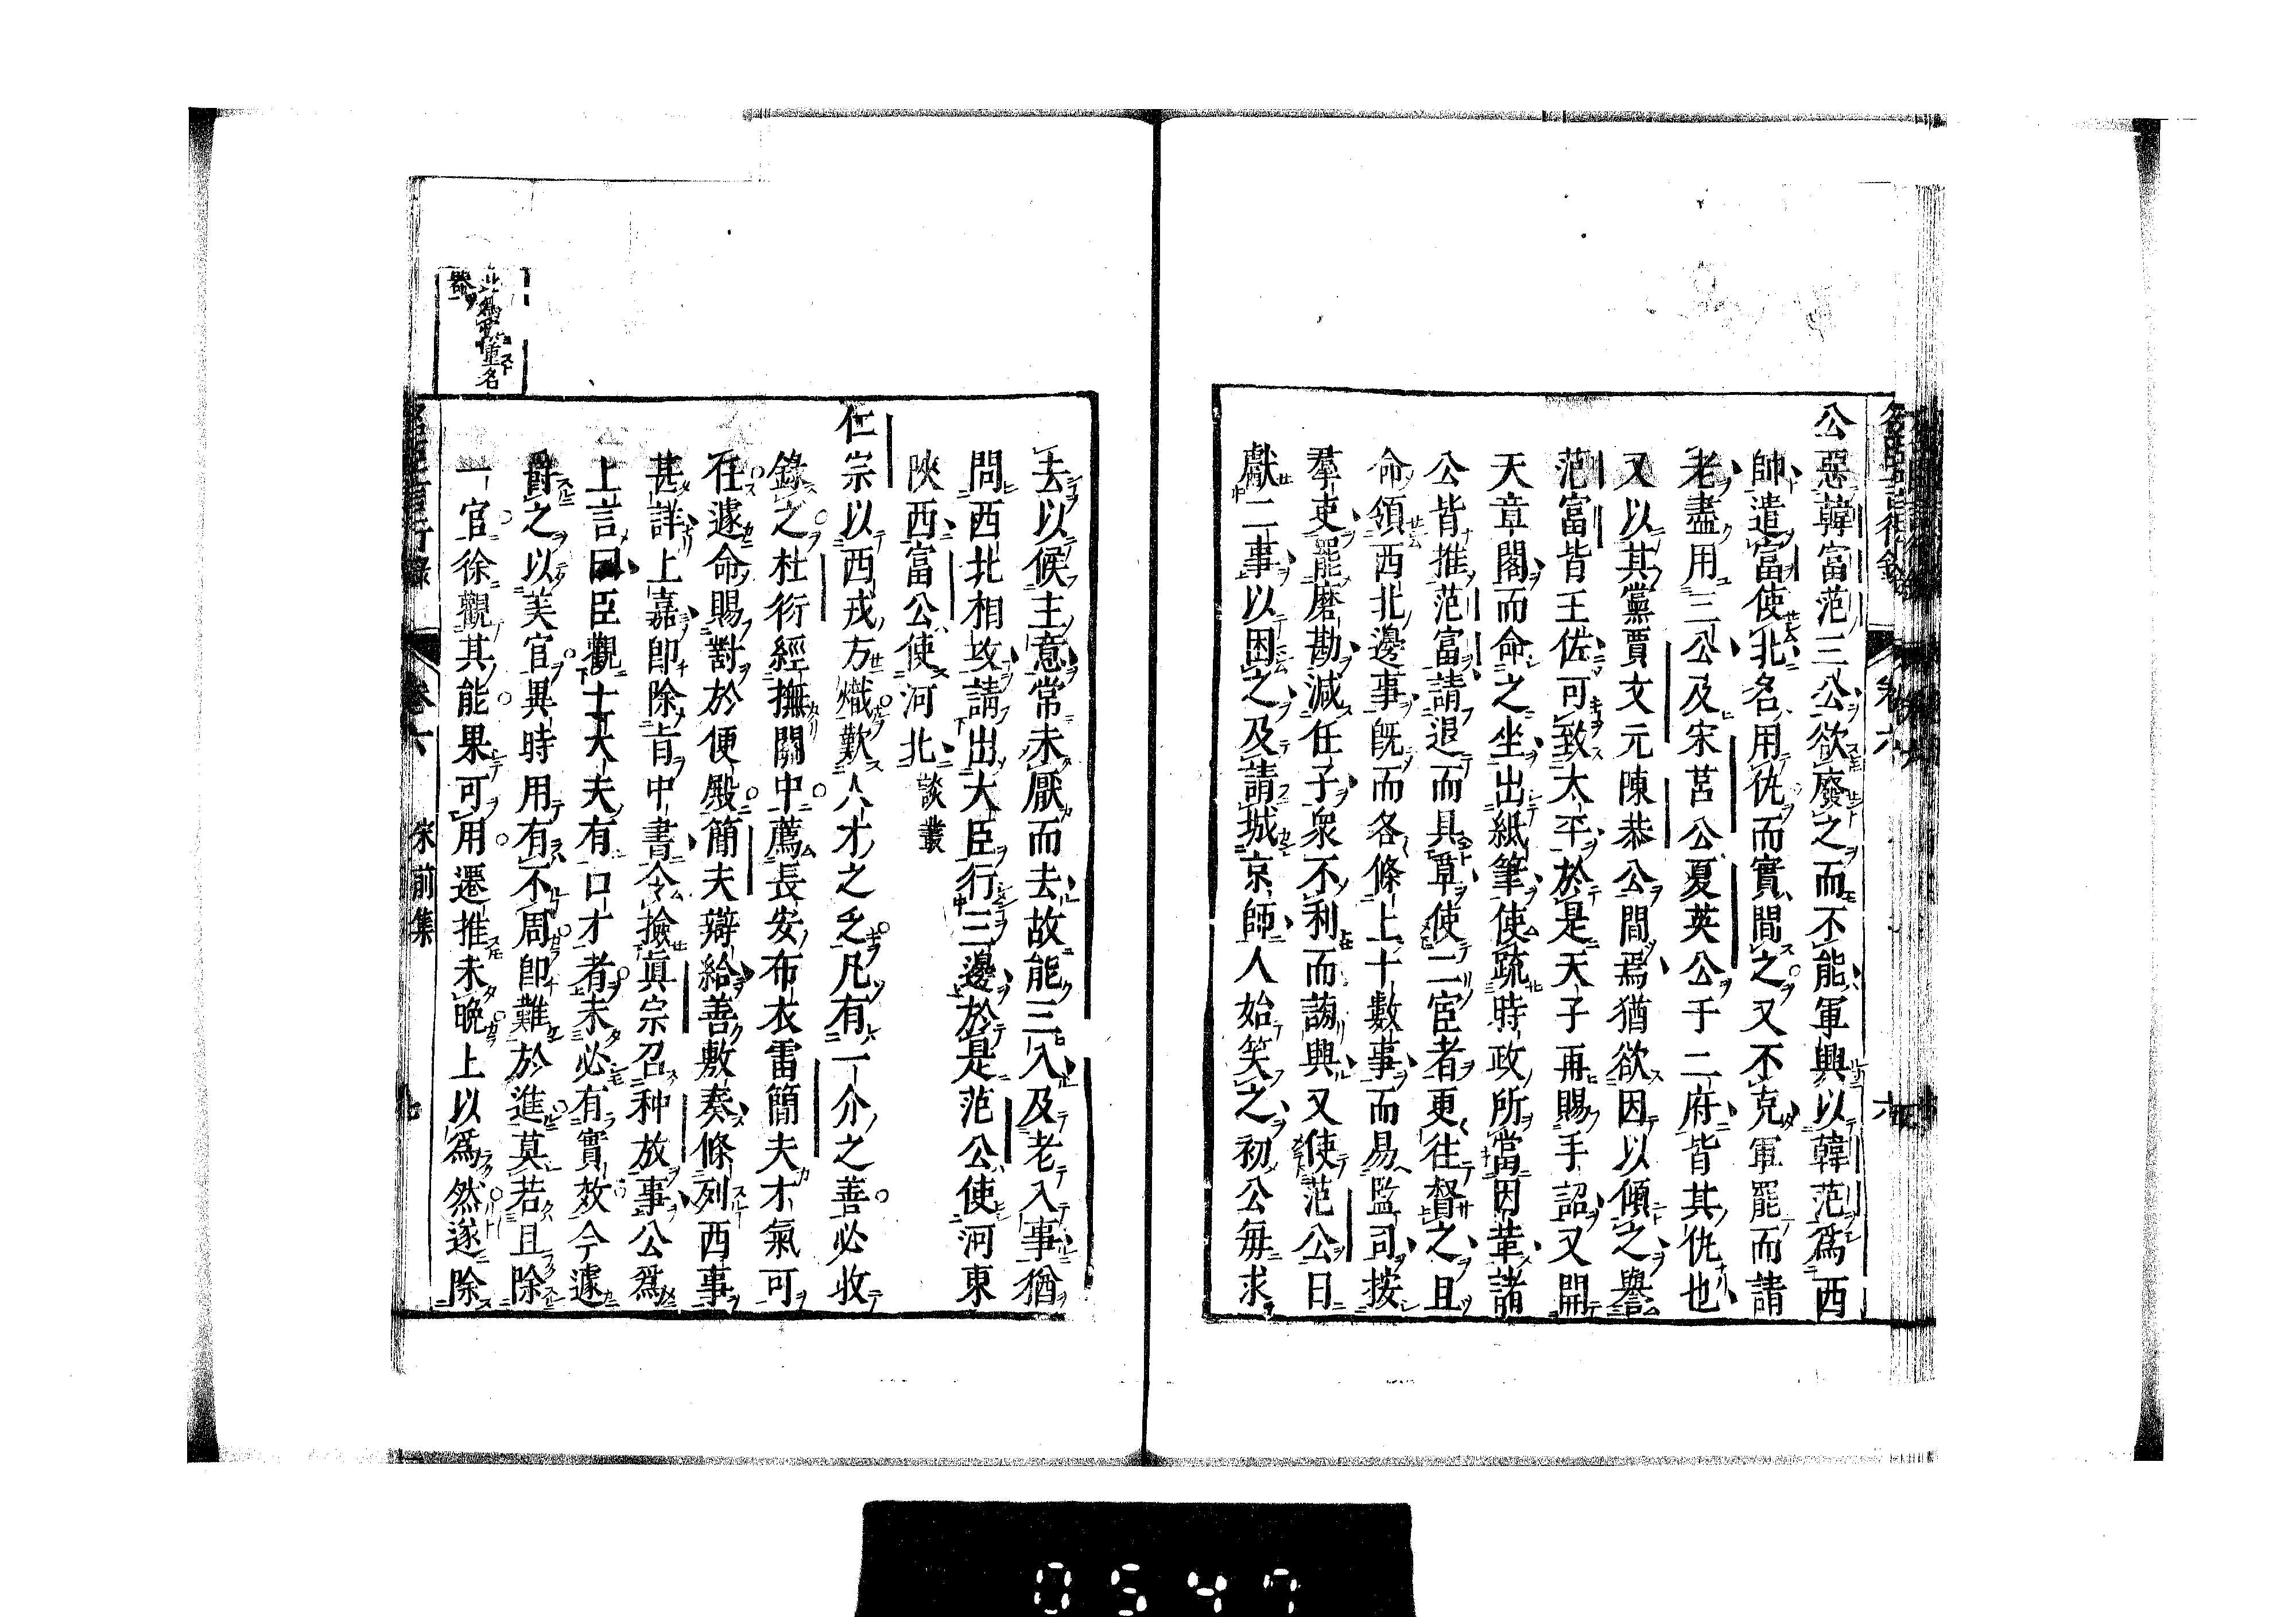 公惡韓富范三公欲廢之而不能軍興以韓范爲西
帥遣富使北名用仇而實間之又不克軍罷而請
老盡用三公及宋莒公夏英公于二府皆其仇也
又以其黨賈文元陳恭公間焉猶欲因以傾之譽
范富皆王佐可致太平於是天子再賜手詔又開
天章閣而命之坐出紙筆使疏時政所當因革諸
公皆推范富請退而具草使二宦者更往督之且
命領西北邊事既而各條上十數事而易監司按
羣吏罷磨勘減任子衆不利而謗興又使范公日
獻二事以困之及請城京師人始笑之初公毎求
去以候主意常未厭而去故能三入及老入事猶
問西北相攻請出大臣行三邊於是范公使河東
陝西富公使河北談叢
仁宗以西戎方熾歎人才之乏凡有一介之善必收
錄之杜衍經撫關中薦長安布衣雷簡夫才氣可
任遽命賜對於便殿簡夫辯給善敷奏條列西事
甚詳上嘉卽除肯中書令撿眞宗召种放事公爲
上言曰臣觀士大夫有口才者未必有實效今遽
爵之以美官異時用有不周卽難於進莫若且除
一官徐觀其能果可用遷推未晩上以爲然遂除
卷六
宋前集
七